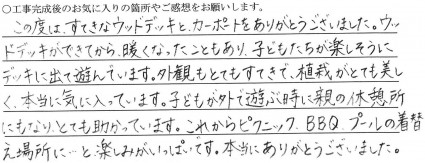 ○工事完成後のお気に入りの箇所やご感想をお願いします。
この度は、すてきなウッドデッキと、カーポートをありがとうございました。ウッ
ドデッキができてから、暖くなったこともあり、子どもたちが楽しそうに
デッキに出て遊んでいます。外観もとてもすてきで、植栽がとても美し
く、本当に気に入っています。子どもが外で遊ぶ時に親の休憩所
にもなり、とても助かっています。これからピクニック、BBQ、プールの着替
え場所に…と楽しみがいっぱいです。本当にありがとうございました。